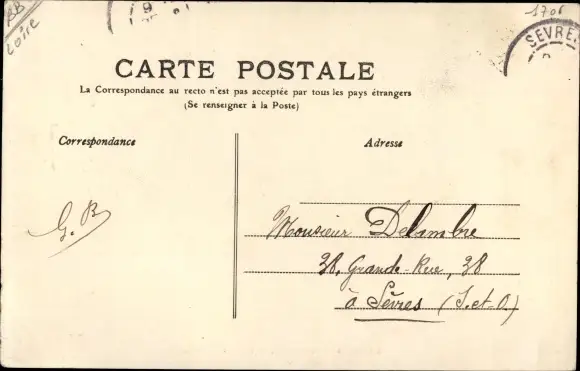 BB
Loire
1706
9
SEVRE
CARTE POSTALE
La Correspondance au recto n'est pas acceptée par tous les pays étrangers
(Se renseigner à la Poste)
Correspondance
Adresse
G. B
Monsieur Delambre
38, Grande-Rue, 38
à Sèvres (S.et-O.)